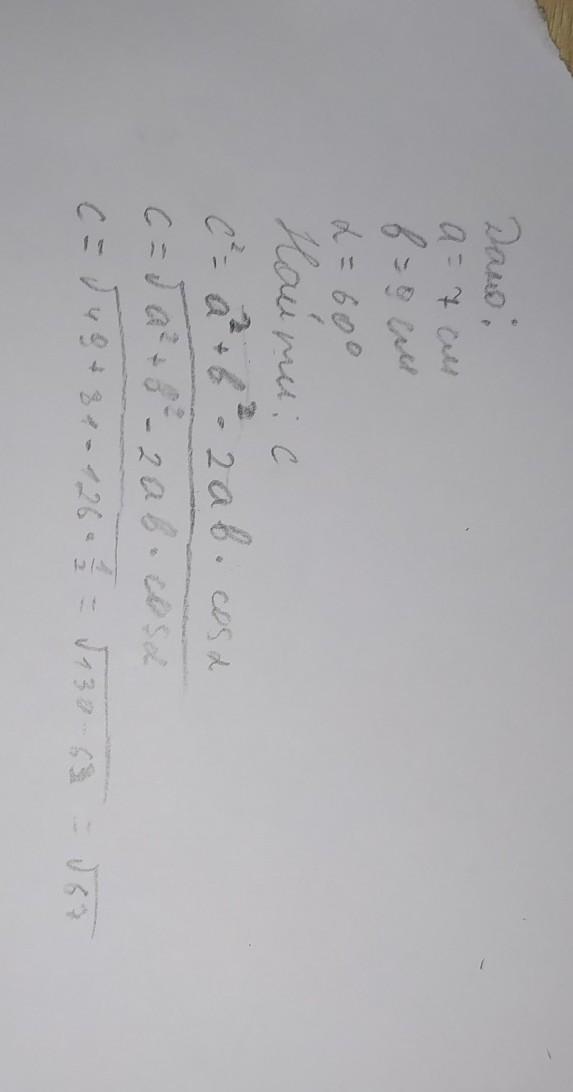 Дано:
a = 7 см
b = 9 см
α = 60°
Найти: c
c² = a² + b² - 2ab · cosα
c = √a² + b² - 2ab · cosα
c = √49 + 81 - 126 · 1/2 = √130 - 63 = √67